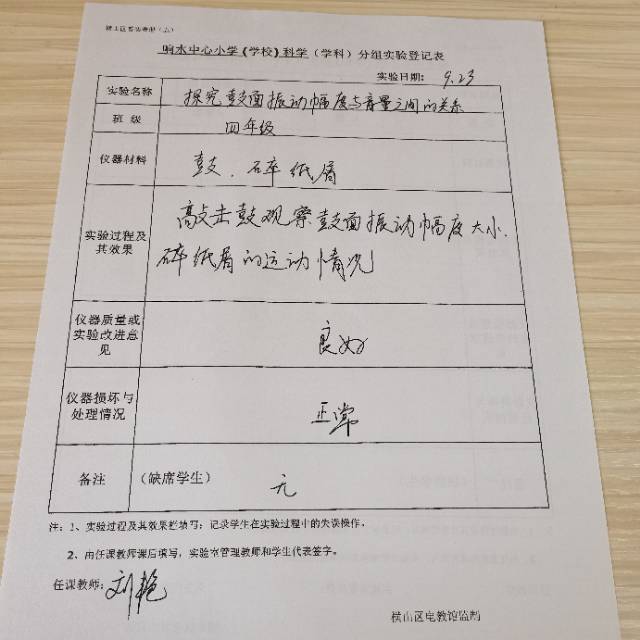 响水中心小学(学校)科学(学科)分组实验登记表
实验日期: 9.23
实验名称 探究鼓面振动幅度与音量之间的关系
班 级 四年级
仪器材料 鼓、碎纸屑
实验过程及其效果 敲击鼓观察鼓面振动幅度大小、
碎纸屑的运动情况
仪器质量或实验改进意见 良好
仪器损坏与处理情况 正常
备注 (缺席学生) 无
注:1、实验过程及其效果栏填写:记录学生在实验过程中的失误操作。
2、由任课教师课后填写,实验室管理教师和学生代表签字。
任课教师: 刘艳
横山区电教馆监制